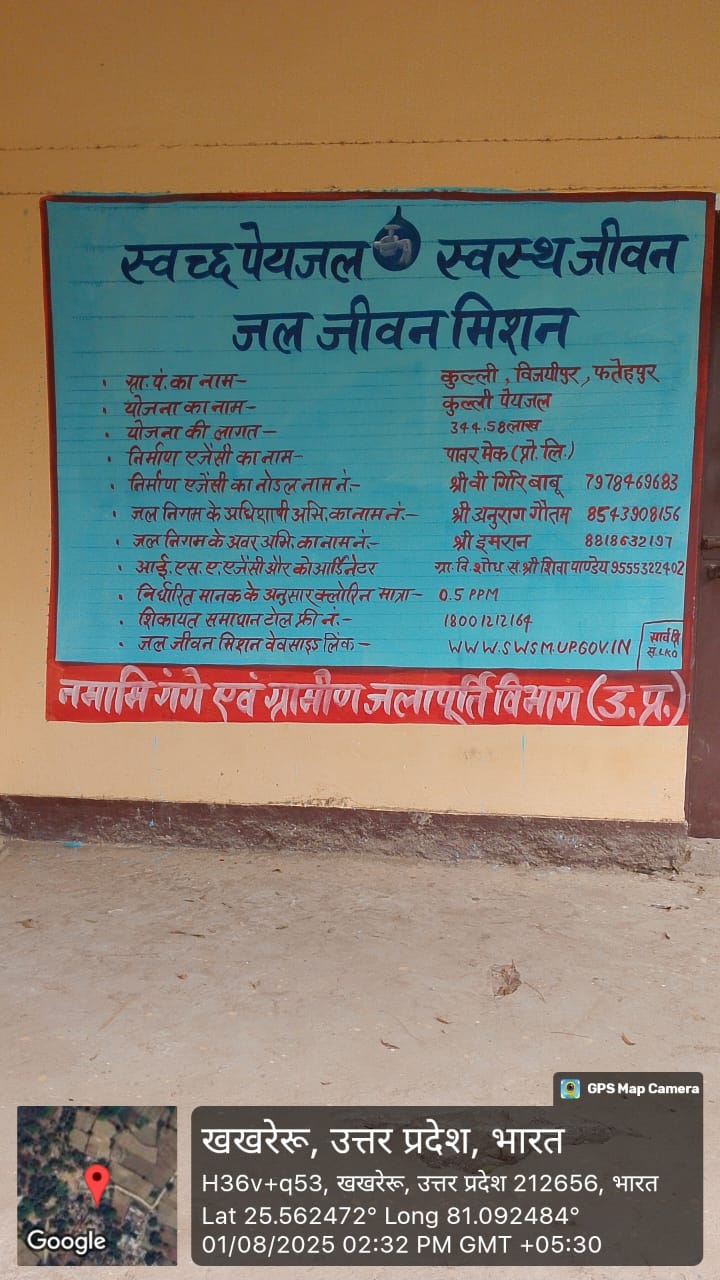 स्वच्छ पेयजल स्वस्थ जीवन
जल जीवन मिशन
• ग्रा.पं. का नाम- कुल्ली, विजयीपुर, फतेहपुर
• योजना का नाम- कुल्ली पेयजल
• योजना की लागत- 344.58 लाख
• निर्माण एजेंसी का नाम- पावर मेक (प्रो. लि.)
• निर्माण एजेंसी का नोडल नाम नं:- श्री वी गिरि बाबू 7978469683
• जल निगम के अधिशाषी अभि. का नाम नं:- श्री अनुराग गौतम 8543908156
• जल निगम के अवर अभि. का नाम नं:- श्री इमरान 8818632197
• आई.एस.ए. एजेंसी और कोआर्डिनेटर ग्रा. वि. शोध सं. श्री शिवा पाण्डेय 9555322402
• निर्धारित मानक के अनुसार क्लोरिन मात्रा- 0.5 PPM
• शिकायत समाधान टोल फ्री नं.- 18001212164
• जल जीवन मिशन वेवसाइड लिंक- WWW.SWSM.UP.GOV.IN
सं. LKO
नमामि गंगे एवं ग्रामीण जलापूर्ति विभाग (उ.प्र.)
GPS Map Camera
खखरेरू, उत्तर प्रदेश, भारत
H36v+q53, खखरेरू, उत्तर प्रदेश 212656, भारत
Lat 25.562472° Long 81.092484°
01/08/2025 02:32 PM GMT +05:30
Google